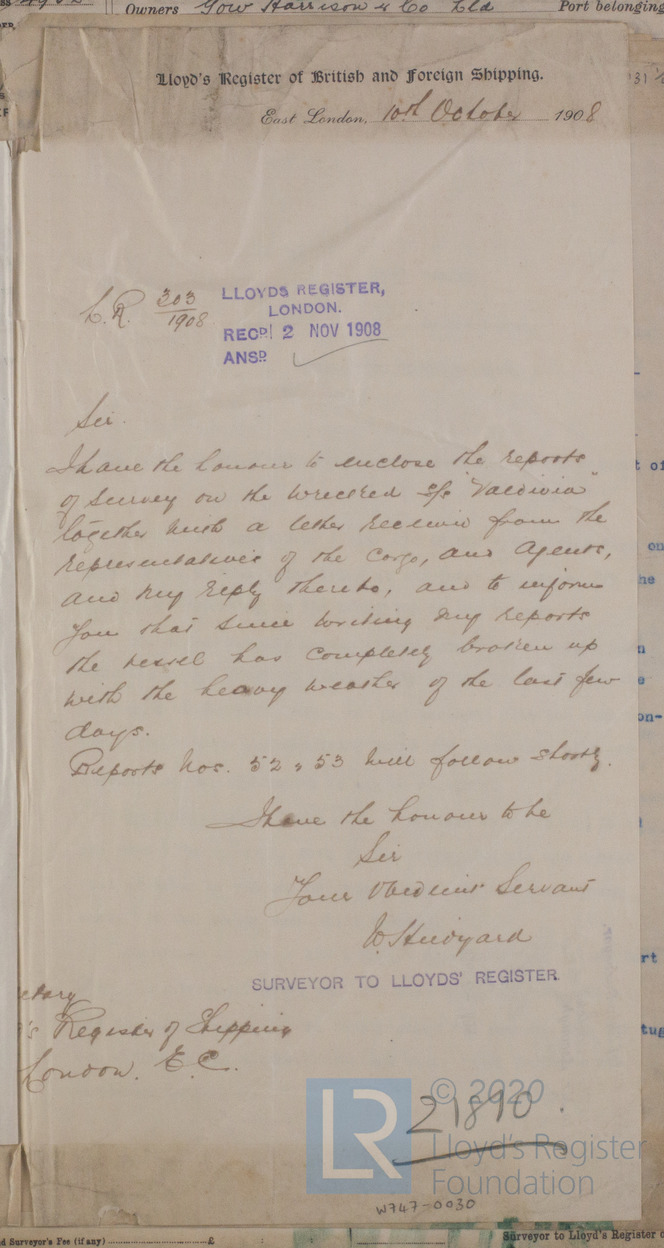 Owners Gow Harrison & Co Ltd Port belonging
Lloyd's Register of British and Foreign Shipping.
East London, 10th October 1908
L.R. 303
1908
LLOYDS REGISTER,
LONDON.
RECD 2 NOV 1908
ANSD
Sir.
I have the honour to enclose the reports
of Survey on the wrecked s/s "Valdivia"
together with a letter received from the
representatives of the Cargo, and Agents,
and my reply thereto, and to inform
you that since writing my reports
the vessel has completely broken up
with the heavy weather of the last few
days.
Reports Nos. 52 & 53 will follow shortly.
I have the honour to be
Sir
Your Obedient Servant
SURVEYOR TO LLOYDS' REGISTER
etary
's Register of Shipping
London. E.C.
21890
LR © 2020
Lloyd's Register
Foundation
W747-0030
d Surveyor's Fee (if any) £ : : Surveyor to Lloyd's Register o